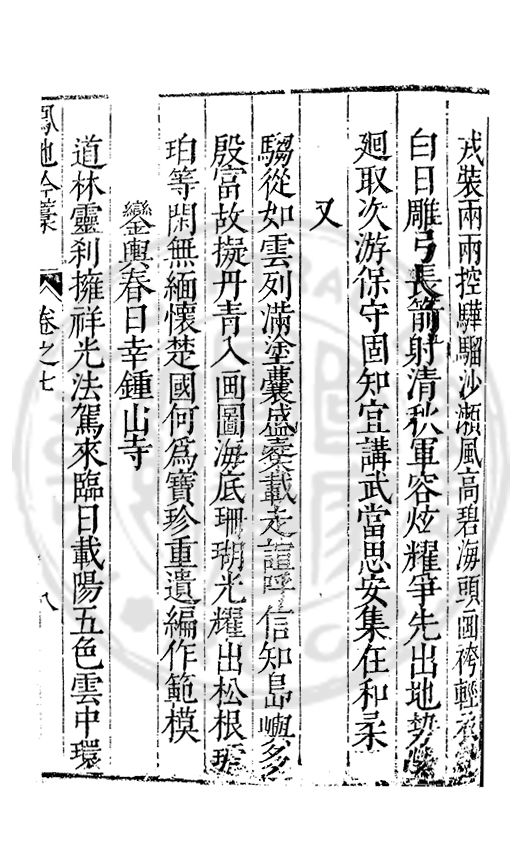 戎裝兩兩控驊騮沙瀨風高碧海頭圓袴輕
白日雕弓長箭射清秋軍容炫耀爭先出地勢
廻取次游保守固知宜講武當思安集在和柔
又
騶從如雲列滿塗囊盛橐載走諠呼信知島嶼多
殷富故擬丹青入画圖海底珊瑚光耀出松根
珀等閑無緬懷楚國何爲寶珍重遺編作範模
鑾輿春日幸鍾山寺
道林靈刹擁祥光法駕來臨日載陽五色雲中環
鳳池吟藁 卷之七 八